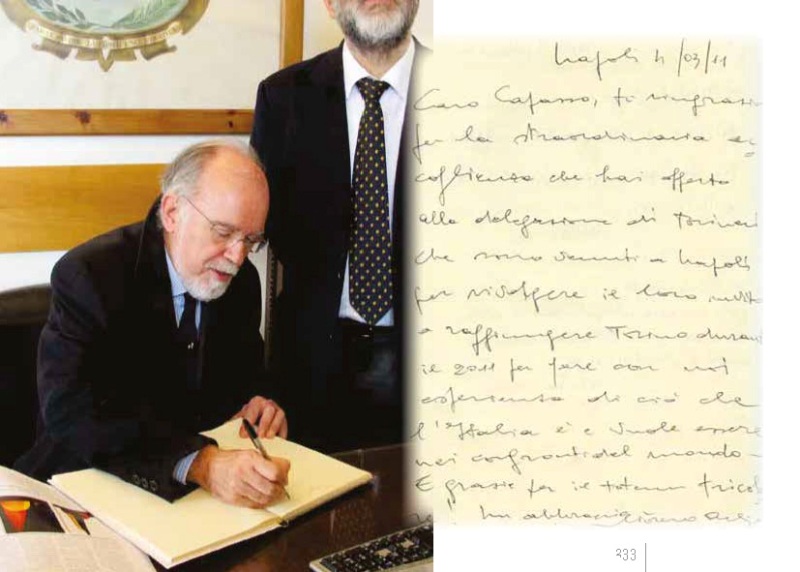 Napoli 4/03/11
Caro Cafasso, ti ringrazi
per la straordinaria ac
coglienza che hai offerto
alla delegazione di Torinesi
che sono venuti a Napoli
per rivolgere il loro invito
a raggiungere Torino durant
il 2011 per fare con noi
esperienza di ciò che
l'Italia è e vuole essere
nei confronti del mondo.
E grazie per il totem tricol
re! Un abbraccio
333